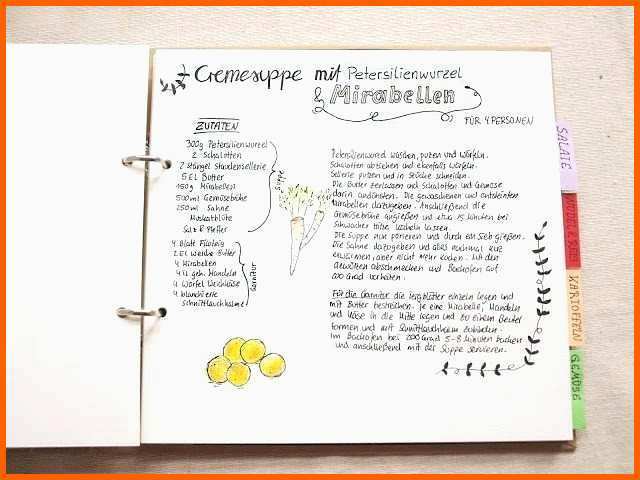 Cremesuppe mit Petersilienwurzel
& Mirabellen
FÜR 4 PERSONEN
ZUTATEN
300g Petersilienwurzel
2 Schalotten
2 Stängel Staudensellerie
5 EL Butter
150g Mirabellen
500ml Gemüsebrühe
250ml Sahne
Muskatblüte
Salz & Pfeffer
Suppe
4 Blatt Filoteig
2 EL weiche Butter
4 Mirabellen
4 TL geh. Mandeln
4 Würfel
4 blanchierte
Schnittlauchhalme
Garnitur
Petersilienwurzel waschen, putzen und würfeln.
Schalotten abziehen und ebenfalls würfeln.
Sellerie putzen und in Stücke schneiden.
Die Butter zerlassen und Schalotten und Gemüse
darin andünsten. Die gewaschenen und entsteinten
Mirabellen dazugeben. Anschließend die
Gemüsebrühe angießen und etwa 15 Minuten bei
schwacher Hitze köcheln lassen.
Die Suppe nun pürieren und durch ein Sieb gießen.
Die Sahne dazugeben und alles nochmal kurz
erwärmen, aber nicht mehr kochen. Mit den
Gewürzen abschmecken und Backofen auf
200 Grad vorheizen.
Für die Garnitur die Teigblätter einzeln legen und
mit Butter bestreichen. Je eine Mirabelle, Mandeln
und Käse in die Mitte legen und zu einem Beutel
formen und mit Schnittlauchhalm zubinden.
Im Backofen bei 200 Grad 5-8 Minuten backen
und anschließend mit der Suppe servieren.
SALATE
KARTOFFELN
GEMÜSE